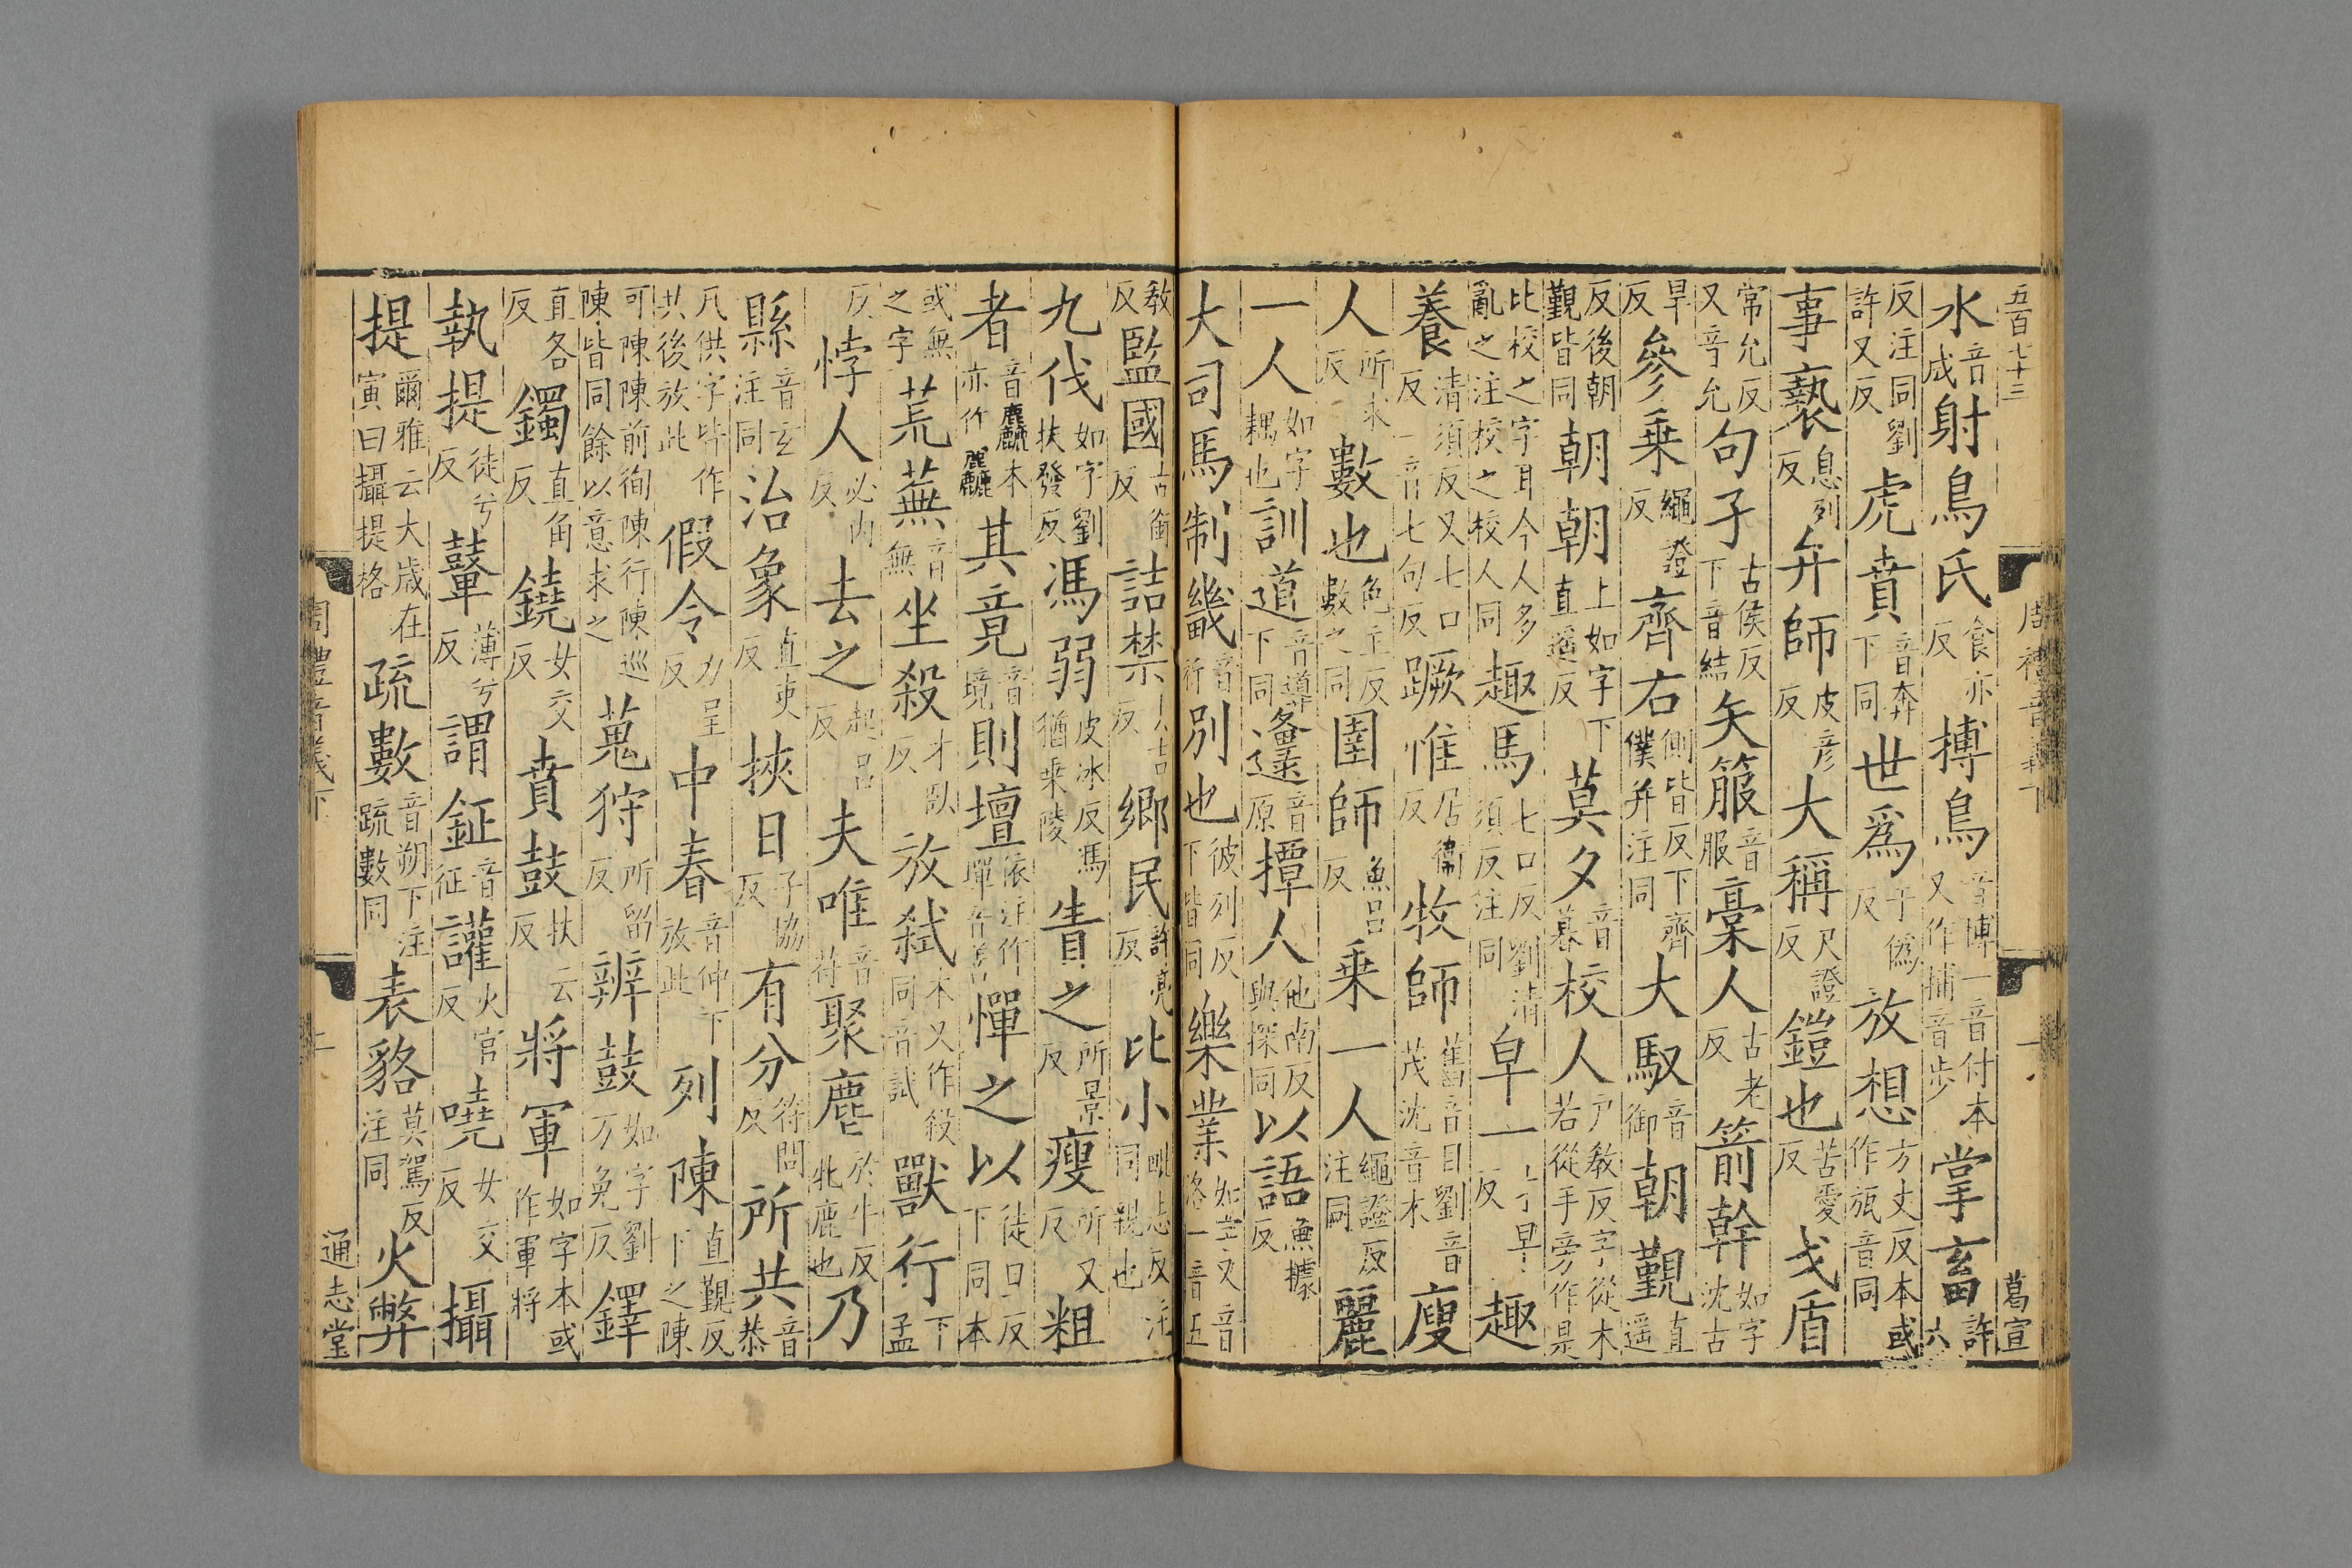 五百七十三
周禮音義下
葛宣
水音成射鳥氏食亦反搏鳥音博一音付本又作捕音步掌畜許六
反注同劉許又反虎賁音奔下同世爲于僞反放想方丈反本或作瓬音同
事褻息列反弁師皮彥反大稱尺證反鎧也苦愛反戈盾
常允反又音允句子古侯反下音結矢箙音服稾人古老反箭幹如字沈古
旱反參乗繩證反齊右側皆反下齊僕并注同大馭音御朝覲直遥
反後朝覲皆同朝朝上如字下直遥反莫夕音暮校人戸教反字從木若從手旁作是
比校之字耳今人多亂之注校之校人同趣馬七口反劉清須反注同皁一才早反趣
養清須反又七口反一音七句反蹶惟居衞反牧師舊音目劉音茂沈音木廋
人所求反數也色主反數之同圉師魚呂反乗一人繩證反注同麗
一人如字耦也訓道音導下同邍音原撢人他南反與探同以語魚據反
大司馬制畿音祈別也彼列反下皆同樂業如字又音洛一音五
教反監國古銜反詰禁起吉反鄉民許亮反比小毗志反注同親也
九伐如字劉扶發反馮弱皮冰反馮猶乘陵眚之所景反瘦所又反粗
者音麤本亦作麤其竟音境則壇依注作墠音善憚之以徒旦反下同本
或無之字荒蕪音無坐殺才臥反放弑本又作殺同音試獸行下孟
反悖人必内反去之起呂反夫唯音符聚麀於牛反牝鹿也乃
縣音玄注同治象直吏反挾日子協反有分符問反所共音恭
凡供字皆作共後放此假令力呈反中春音仲下放此列陳直覲反下之陳
可陳陳前徇陳行陳巡陳皆同餘以意求之蒐狩所留反辨鼓如字劉方免反鐸
直各反鐲直角反鐃女交反賁鼓扶云反將軍如字本或作軍將
執提徒兮反鼙薄兮反謂鉦音征讙火官反嘵女交反攝
提爾雅云大歲在寅曰攝提格疏數音朔下注疏數同表貉莫駕反注同火弊
周禮音義下
通志堂